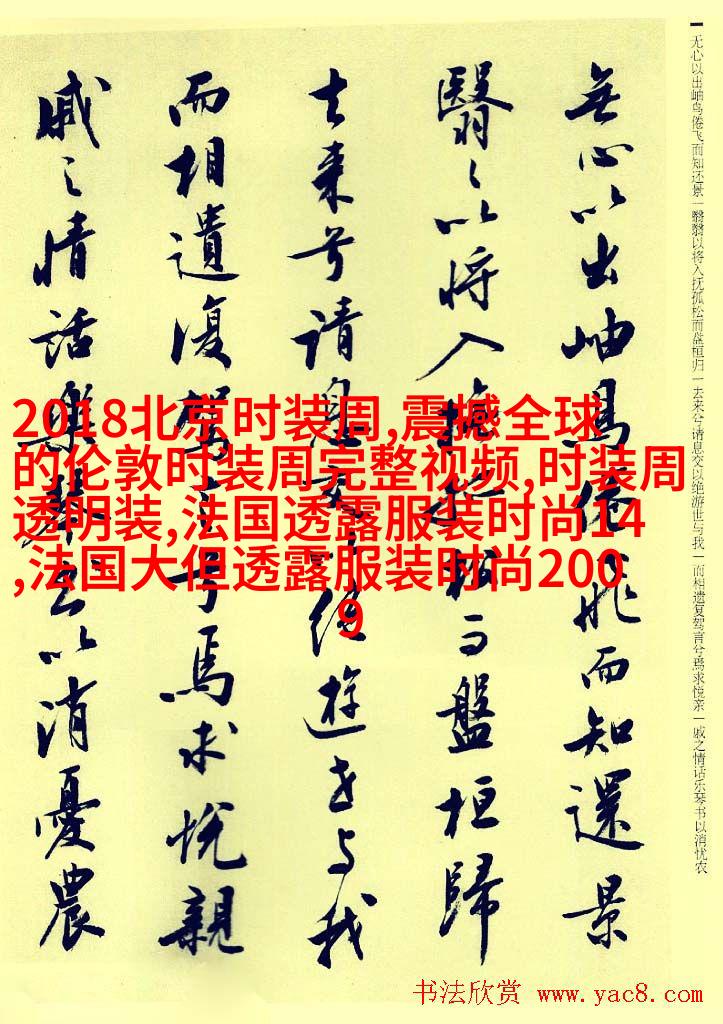 无心以出岫鸟倦飞而知还景一翳翳以将入抚孤松而盘桓归一去来兮请息交以绝游世与我一而相遗复驾言兮焉求悦亲一戚之情话乐琴书以消忧农
無心以出岫鳥倦飛而知還景
翳々以将入撫孤松而盤桓歸
去来兮请息交以绝遊世与我
而相遺復駕言兮焉求悦親
戚之情話樂琴書以消憂農
2018北京时装周,震撼全球
的伦敦时装周完整视频,时装周
透明装,法国透露服装时尚14
,法国大但透露服装时尚200
9
书法欣赏 www.yac8.com